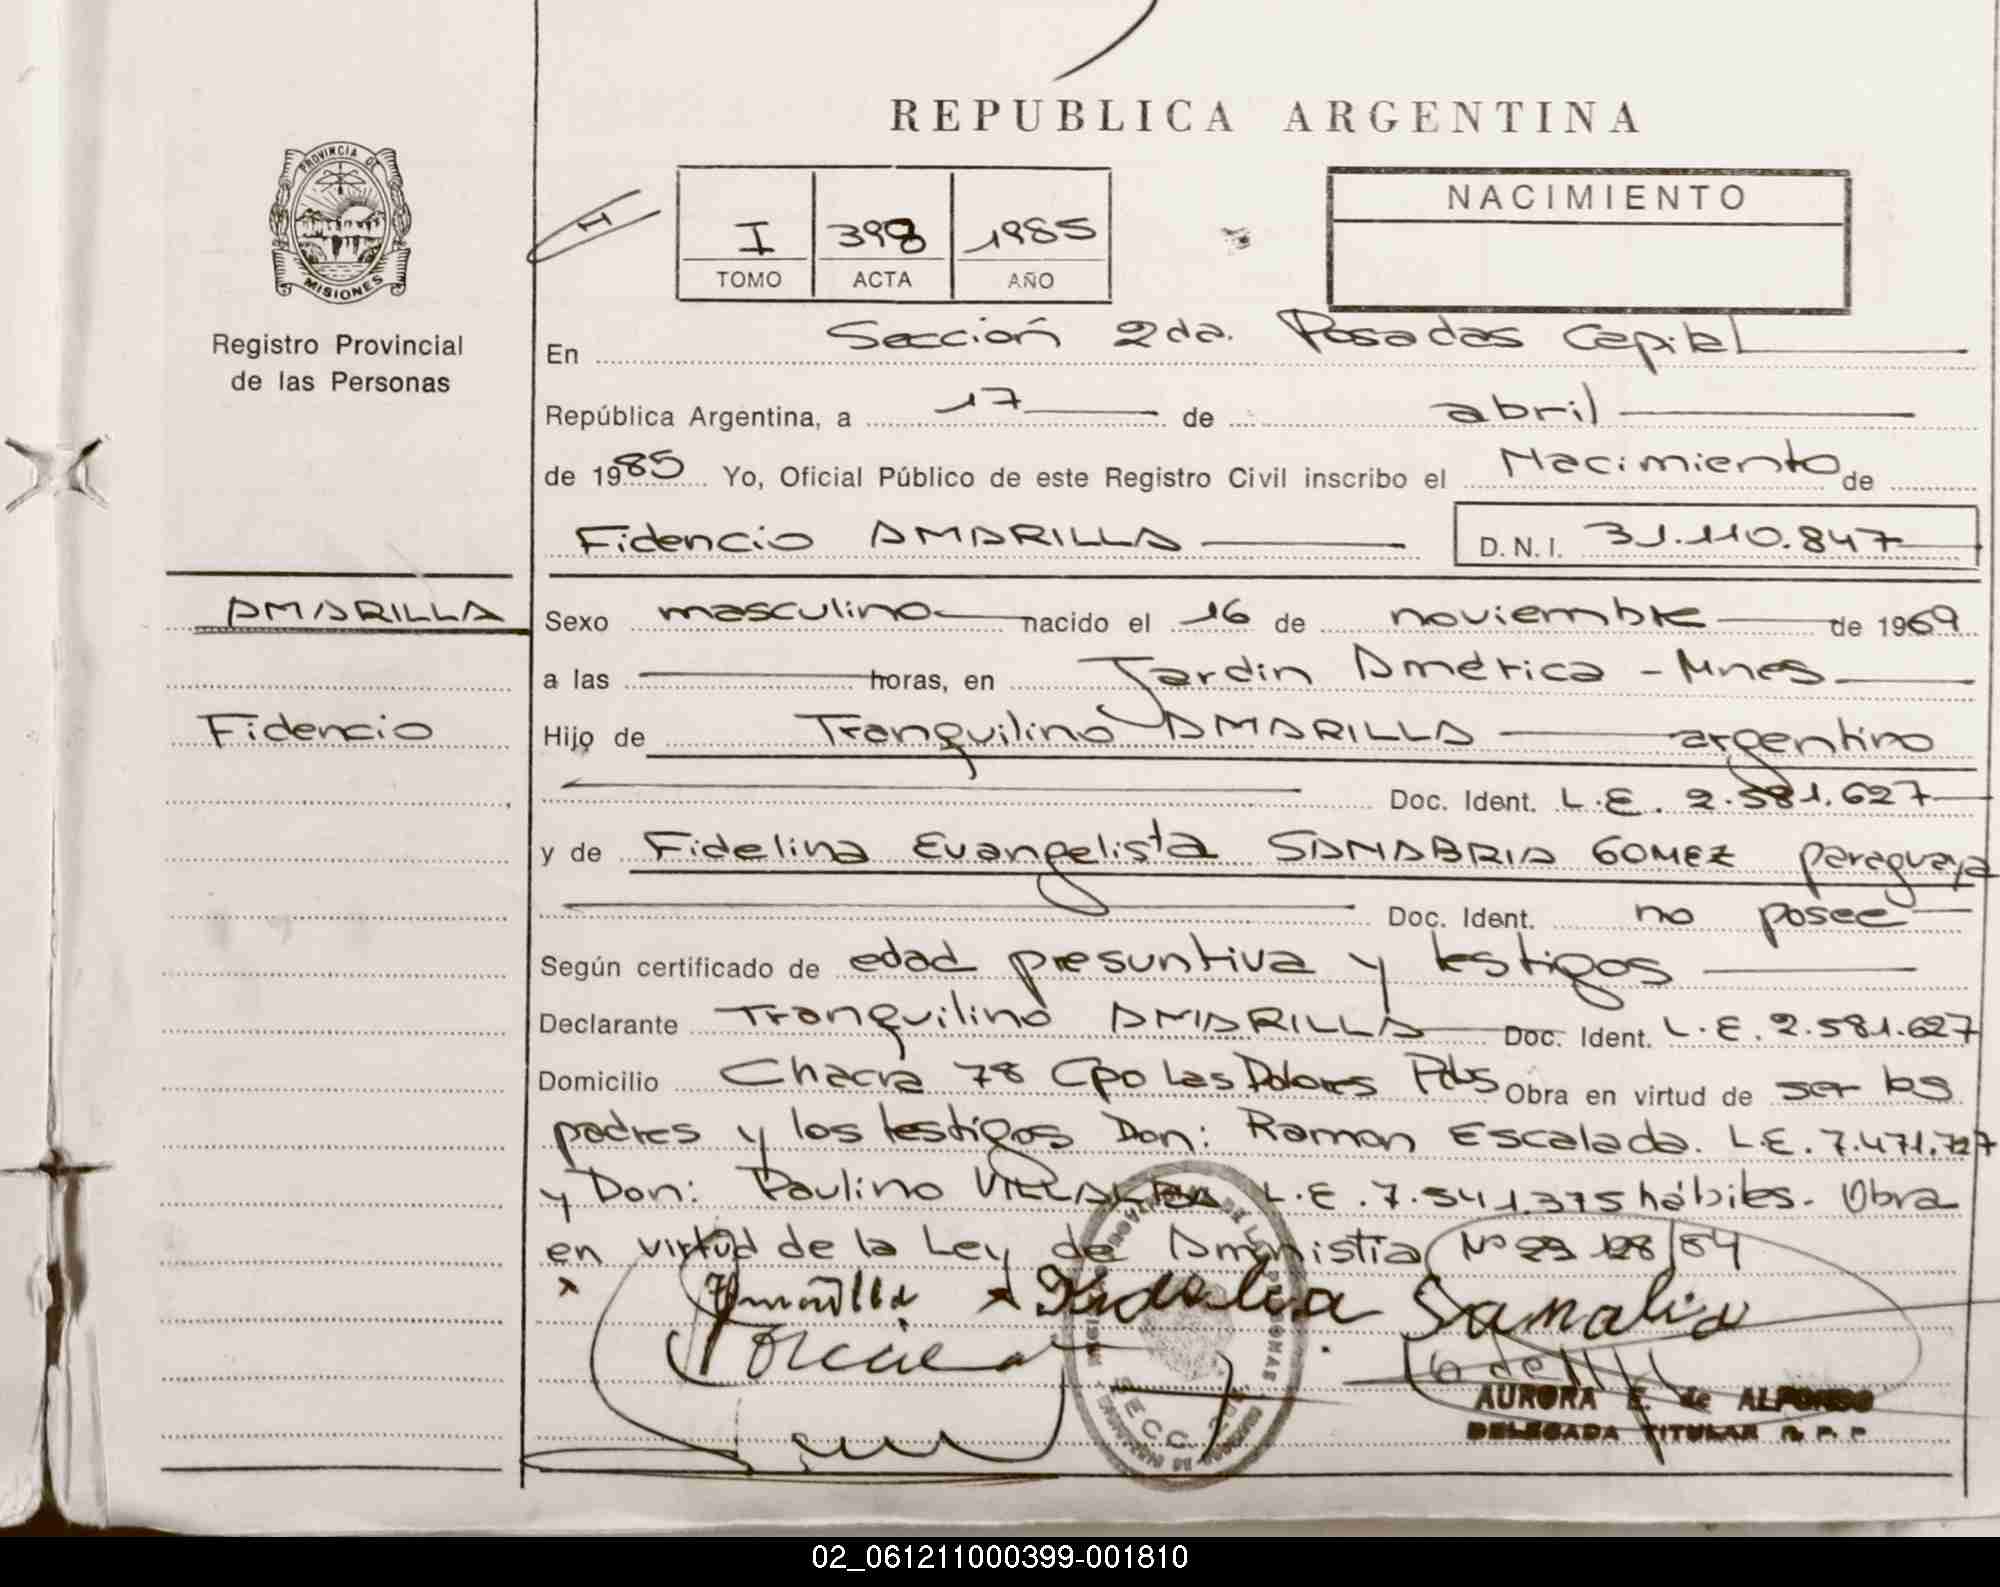 REPUBLICA ARGENTINA
PROVINCIA DE MISIONES
Registro Provincial
de las Personas
I
I 398 1985
TOMO ACTA AÑO
NACIMIENTO
En Sección 2da. Posadas Capital
República Argentina, a 17 de abril
de 1985 Yo, Oficial Público de este Registro Civil inscribo el Nacimiento de
Fidencio AMARILLA D.N.I. 31.110.847
AMARILLA
Fidencio
Sexo masculino nacido el 16 de noviembre de 1969
a las horas, en Jardin América - Mnes
Hijo de Tranquilino AMARILLA argentino
Doc. Ident. L.E. 2.581.627
y de Fidelina Evangelista SANABRIA GOMEZ paraguaya
Doc. Ident. no posee
Según certificado de edad presuntiva y testigos
Declarante Tranquilino AMARILLA Doc. Ident. L.E. 2.581.627
Domicilio Chacra 78 Cpo Las Dolores Pdas Obra en virtud de ser los
padres y los testigos Don: Ramon Escalada. L.E. 7.471.727
y Don: Paulino VILLALBA L.E. 7.541.375 hábiles. Obra
en virtud de la Ley de Amnistia Nº 23 128/84
Amarilla x Fidelina Sanabria
AURORA E. de ALFONSO
DELEGADA TITULAR R. P. P
02_061211000399-001810